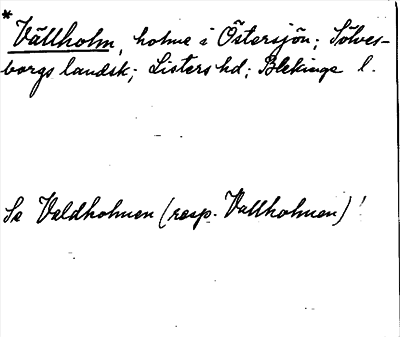 * Vällholm, holme i Östersjön; Sölves-
borgs landsk; Listers hd; Blekinge l.
Se Valdholmen (resp. Vallholmen)!